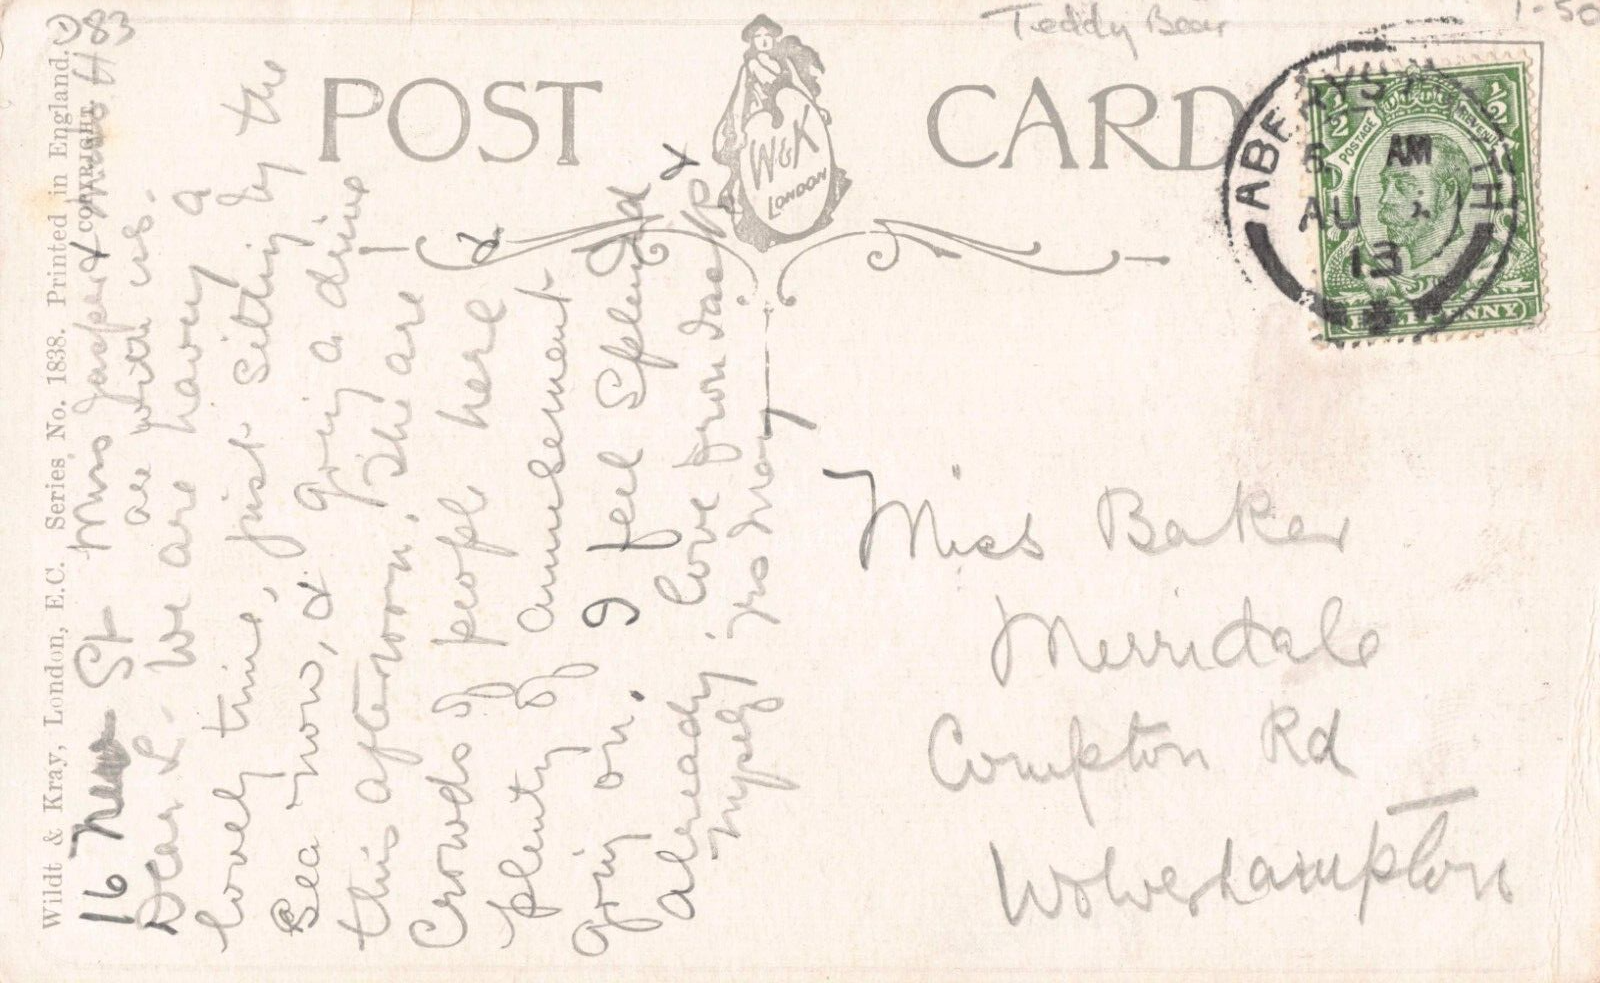 Teddy Bear
1-50
83
POST CARD
W & K
LONDON
ABERYSTWYTH
AM
AU
13
½ ½
POSTAGE REVENUE
HALFPENNY
Wildt & Kray, London, E.C. Series No. 1838. Printed in England.
COPYRIGHT.
16 New St Mrs Jasper & Miss H
are with us.
Dear L. We are having a
lovely time, just sitting by the
Sea now, & going a drive
this afternoon. There are
Crowds of people here &
plenty of amusement
going on. I feel Splendid
already love from Jack &
myself yrs May
Miss Baker
Merridale
Compton Rd
Wolverhampton